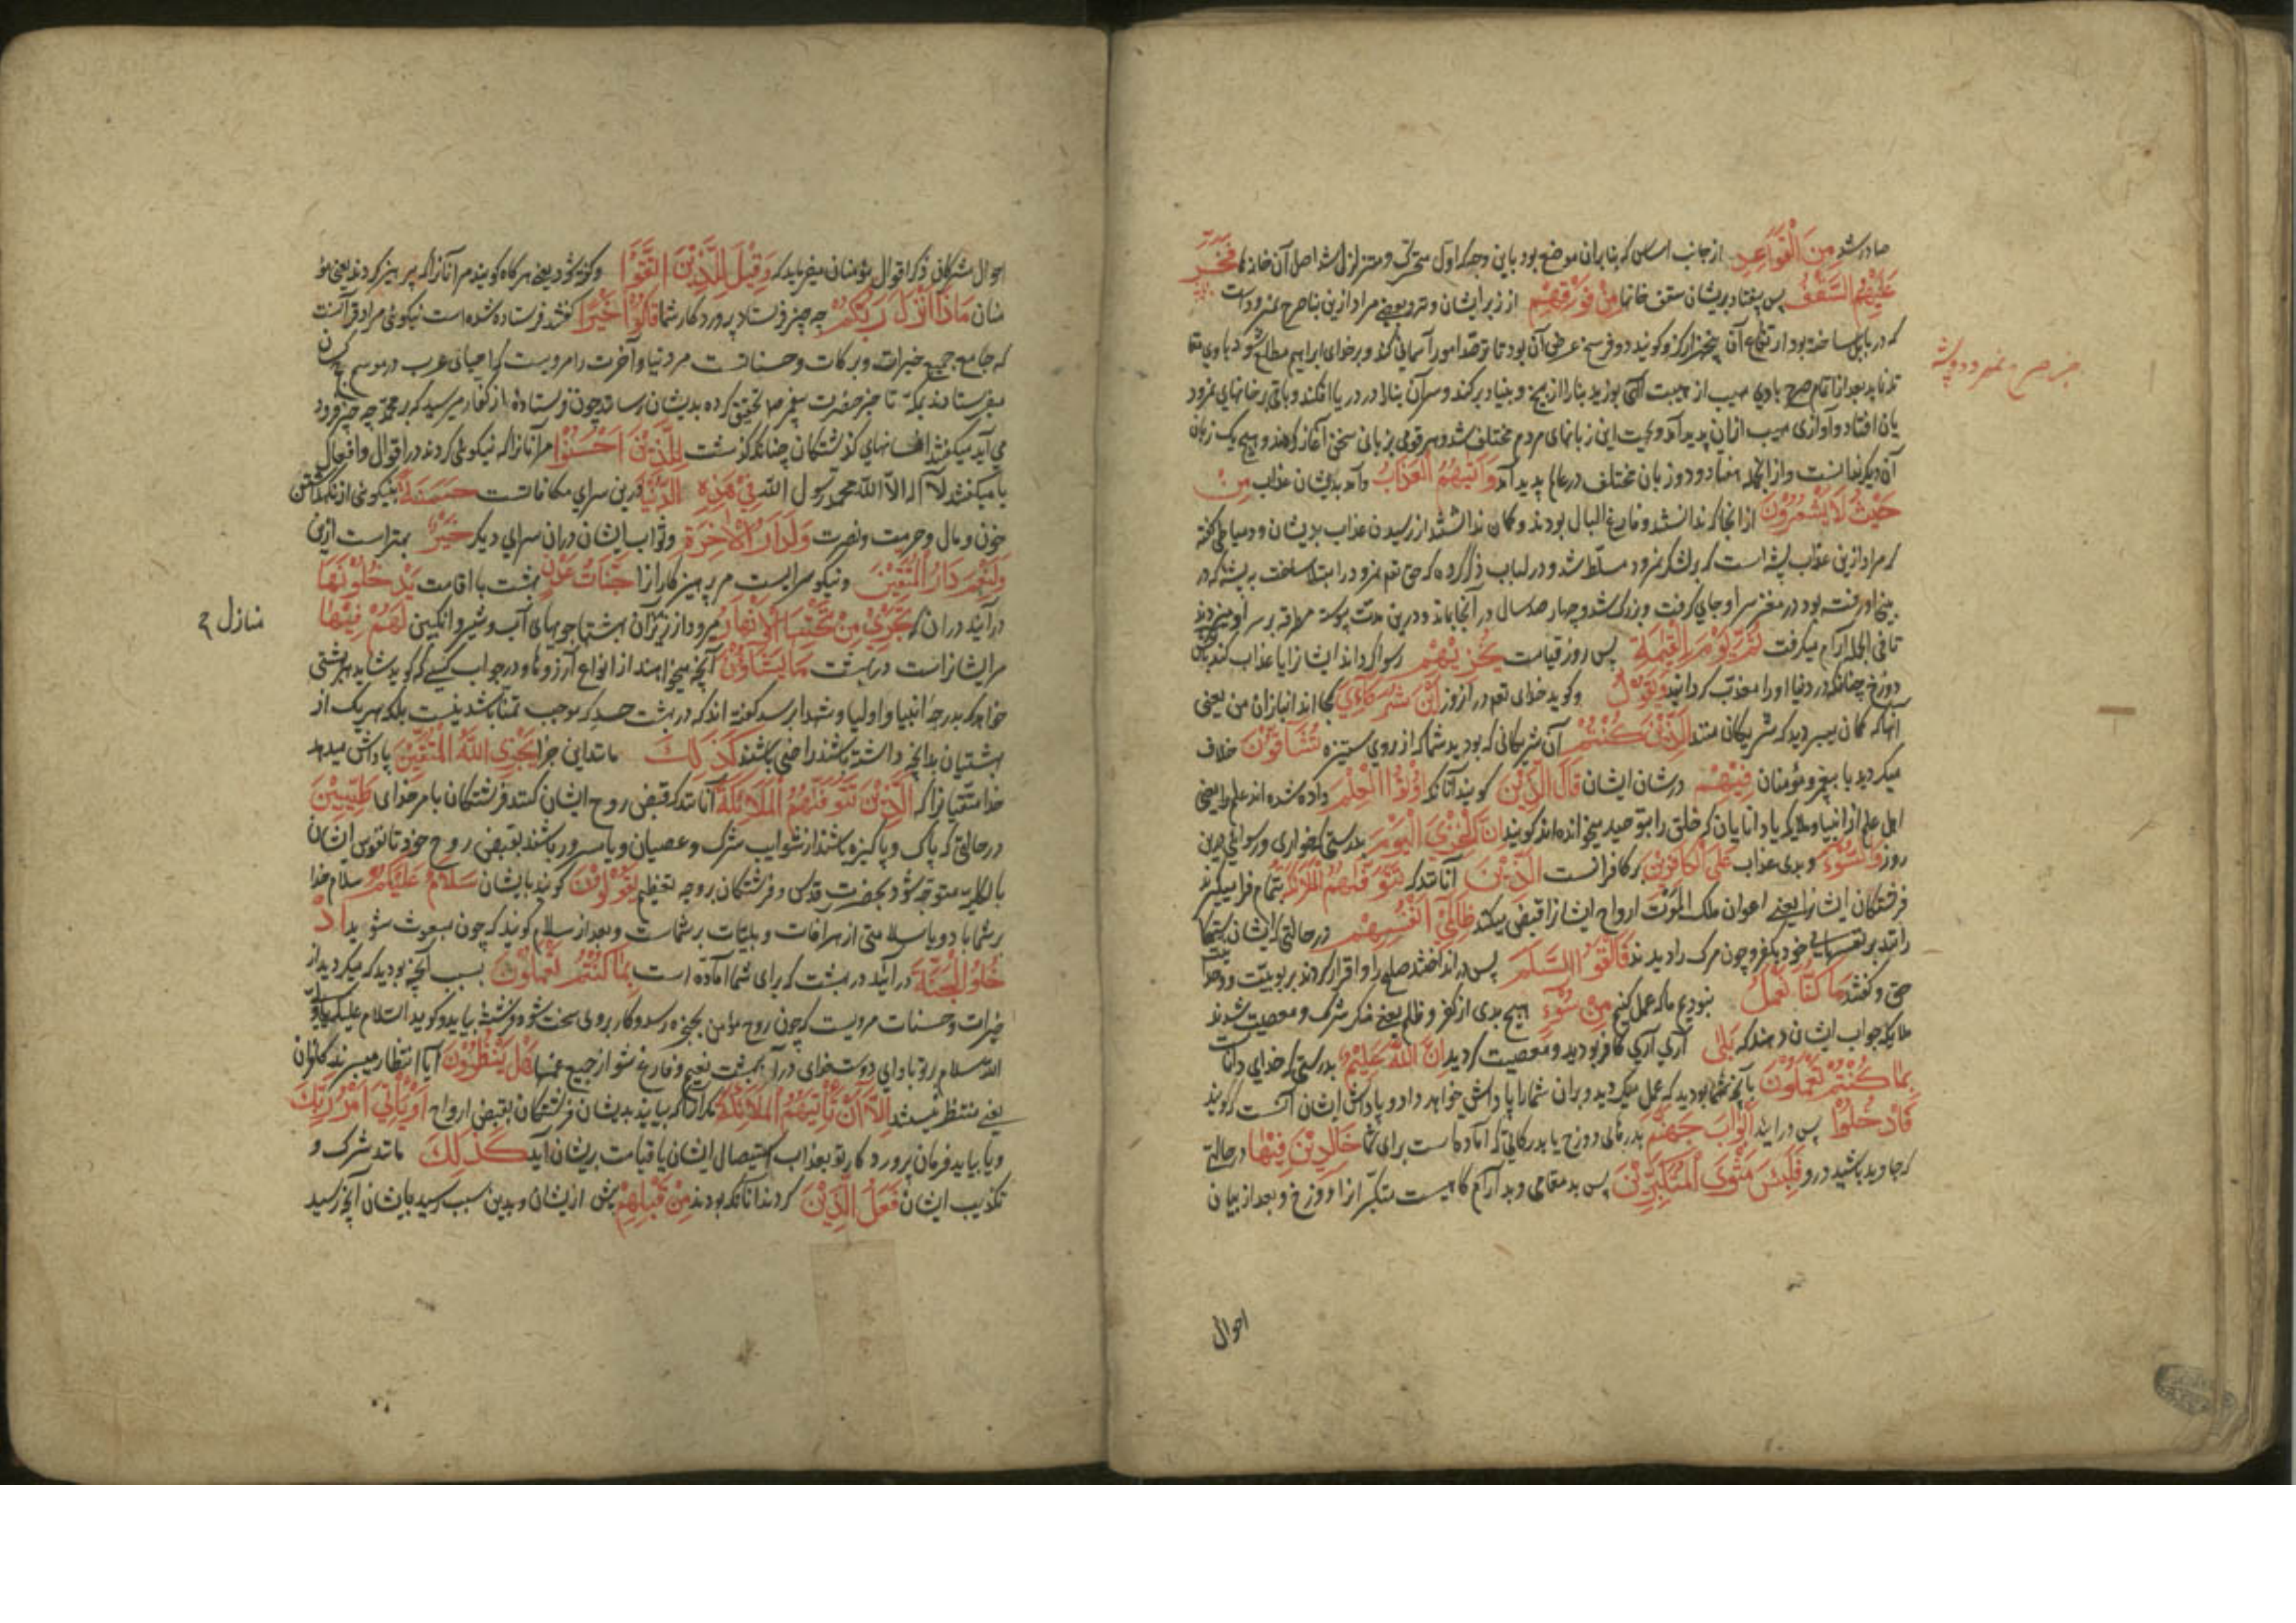 صادر شد مِنَ الْقَوَاعِدِ از جانب اساس که بنا بران موضع بود باین وجه که اول متحرک و متزلزل شد اصل آن خانه‌ها فَخَرَّ
عَلَيْهِمُ السَّقْفُ پس بیفتاد بریشان سقف خانها مِنْ فَوْقِهِمْ از زبر ایشان و نزد بعضی مراد ازین بنا صرح نمرودست
که در بابل ساخته بود ارتفاع آن پنجهزار گز و گویند دو فرسخ عرض آن بود تا ترصد امور آسمانی کند و بر خدای ابراهیم مطلع شود با وی
بعد از اتمام صرح بادی مهیب از مهبت الهی بوزید بنا را از بیخ و بنیاد برکند و سر آن بنا را در دریا افکند و باقی بر خانهای نمرود
یان افتاد و آوازی مهیب ازان پدید آمد و بجهت این زبانهای مردم مختلف شد و هر قومی بزبانی سخن آغاز کردند و هیچ یک زبان
آن دیگر ندانست و از انجمله هفتاد و دو زبان مختلف در عالم پدید آمد وَأَتٰیهُمُ الْعَذَابُ و آمد بدیشان عذاب مِنْ
حَيْثُ لَا يَشْعُرُوْنَ ازانجا که ندانستند و فارغ البال بودند و گمان نداشتند از رسیدن عذاب بدیشان و دمیاطی گفته
که مراد ازین عذاب پشه است که بر لشکر نمرود مسلط شد و در لباب ذکر کرده که حق تعم نمرود را مبتلا ساخت به پشه که در
بینی او رفته بود در مغز سر او جای گرفت و بزرگ شد و چهار صد سال در آنجا بماند و درین مدت پیوسته مطرقه بر سر او میزدند
تا فی الجمله آرام میگرفت ثُمَّ يَوْمَ الْقِيٰمَةِ پس روز قیامت يُخْزِيْهِمْ رسوا گرداند ایشانرا یا عذاب کند
دوزخ چنانکه در دنیا او را معذب گردانید وَيَقُوْلُ و گوید خدای تعم در آن روز اَيْنَ شُرَكَاءِيَ کجا اند انبازان من یعنی
آنها که گمان میبردید که شریکان منند الَّذِيْنَ كُنْتُمْ آن شریکانی که بودید شما که از روی ستیزه تُشَاقُّوْنَ خلاف
میکردید با پیغمبر و مؤمنان فِيْهِمْ در شان ایشان قَالَ الَّذِيْنَ گویند آنانکه اُوْتُوا الْعِلْمَ داده شده اند علم را یعنی
اهل علم از انبیا و ملایکه یا دانایان که خلق را بتوحید میخوانده اند گویند اِنَّ الْخِزْيَ الْيَوْمَ بدرستی که خواری و رسوایی درین
روز وَالسُّوْءَ و بدی عذاب عَلَى الْكَافِرِيْنَ بر کافرانست الَّذِيْنَ آنانند که تَتَوَفّٰیهُمُ الْمَلٰئِكَةُ بتمام فرا میگیرند
فرشتگان ایشانرا یعنی اعوان ملک الموت ارواح ایشانرا قبض میکنند ظَالِمِيْ اَنْفُسِهِمْ در حالتی که ایشان ستمکا
رانند بر نفسهای خود بکفر و چون مرگ را دیدند فَاَلْقَوُا السَّلَمَ پس در اندختند صلح را و اقرار کردند بربوبیت و وحدا
حق و گفتند مَا كُنَّا نَعْمَلُ نبودیم ما که عمل کنیم مِنْ سُوْءٍ هیچ بدی از کفر و ظلم یعنی منکر شرک و معصیت شدند
ملایکه جواب ایشان دهند که بَلٰى آری آری کافر بودید و معصیت کردید اِنَّ اللهَ عَلِيْمٌ بدرستی که خدای داناست
بِمَا كُنْتُمْ تَعْمَلُوْنَ بآنچه شما بودید که عمل میکردید و بران شما را پاداش خواهد داد و پاداش ایشان آنست که گویند
فَادْخُلُوْا پس درآیید اَبْوَابَ جَهَنَّمَ بدرهای دوزخ یا بدرکاتی که آماده است برای شما خَالِدِيْنَ فِيْهَا در حالتی
که جاوید باشید درو فَلَبِئْسَ مَثْوَى الْمُتَكَبِّرِيْنَ پس بد مقامی و بد آرام گاهیست متکبرانرا دوزخ و بعد از بیان
احوال
احوال مشرکان ذکر اقوال مؤمنان میفرماید که وَقِيْلَ لِلَّذِيْنَ اتَّقَوْا و گفته شود یعنی هرگاه گویند مر آنانرا که پرهیز کردند یعنی مؤ
منان مَاذَا اَنْزَلَ رَبُّكُمْ چه چیز فرستاد پروردگار شما قَالُوْا خَيْرًا گفتند فرستاده شده است نیکوئی مراد قرآنست
که جامع جمیع خیرات و برکات و حسناتست مر دنیا و آخرت را مرویست که احیای عرب در موسم حج کسان
میفرستادند بمکه تا خبر حضرت پیغمبر صلم تحقیق کرده بدیشان رسانند چون فرستاده از کفار میرسید که بر محمد چه چیز فرود
می آید میگفتند افسانهای گذشتگان چنانکه گذشت لِلَّذِيْنَ اَحْسَنُوْا مر آنانرا که نیکوئی کردند در اقوال و افعال
یا میگفتند لا آله الا الله محمد رسول الله فِيْ هٰذِهِ الدُّنْيَا درین سرای مکافاتست حَسَنَةٌ بنیکوئی از نگهداشتن
خون و مال و حرمت و نصرت وَلَدَارُ الْاٰخِرَةِ و ثواب ایشان دران سرای دیگر خَيْرٌ بهتر است ازین
وَلَنِعْمَ دَارُ الْمُتَّقِيْنَ و نیکو سراییست مر پرهیزکارانرا جَنَّاتُ عَدْنٍ بهشت با اقامت يَدْخُلُوْنَهَا
درآیند دران که تَجْرِيْ مِنْ تَحْتِهَا الْاَنْهَارُ میرود از زیر آن بهشتها جویهای آب و شیر و انگبین لَهُمْ فِيْهَا
منازل
مر ایشانراست در بهشت مَا يَشَاؤُنَ آنچه میخواهند از انواع آرزوها و در جواب کسی که گوید شاید بهشتی
خواهد که بدرجه انبیا و اولیا و شهدا برسد گفته اند که در بهشت حسد که موجب تمنا باشد نیست بلکه هر یک از
بهشتیان بدانچه داشته باشند راضی باشند كَذٰلِكَ مانند این جزا يَجْزِى اللهُ الْمُتَّقِيْنَ پاداش میدهد
خدا متقیانرا که الَّذِيْنَ تَتَوَفّٰیهُمُ الْمَلٰئِكَةُ آنانند که قبض روح ایشان کنند فرشتگان بامر خدای طَيِّبِيْنَ
در حالتی که پاک و پاکیزه باشند از شوایب شرک و عصیان و یا مسرور باشند بقبض روح خود تا نفوس ایشان
بالکلیه متوجه شود بحضرت قدس و فرشتگان بر وجه تعظیم يَقُوْلُوْنَ گویند بایشان سَلَامٌ عَلَيْكُمْ سلام خدا
بر شما باد و یا سلامتی از هر آفات و بلیات بر شماست و بعد از سلام گویند که چون مبعوث شوید ادْ
خُلُوا الْجَنَّةَ درآیید در بهشت که برای شما آماده است بِمَا كُنْتُمْ تَعْمَلُوْنَ بسبب آنچه بودید که میکردید از
خیرات و حسنات مرویست که چون روح مؤمن بحنجره رسد و کار بر وی سخت شود فرشته بیاید و گوید السلام علیک یا ولی
الله سلام بر تو باد ای دوست خدای درآ به بهشت نعیم و فارغ شو از جمیع غمها هَلْ يَنْظُرُوْنَ آیا انتظار میبرند کافران
یعنی منتظر نیستند اِلَّا اَنْ تَاْتِيَهُمُ الْمَلٰئِكَةُ مگر آنکه بیایند بدیشان فرشتگان بقبض ارواح اَوْ يَاْتِيَ اَمْرُ رَبِّكَ
و یا بیاید فرمان پروردگار تو بعذاب استیصال ایشان یا قیامت بریشان آید كَذٰلِكَ مانند شرک و
تکذیب ایشان فَعَلَ الَّذِيْنَ کردند آنانکه بودند مِنْ قَبْلِهِمْ پیش ازیشان و بدین سبب رسید بایشان آنچه رسید